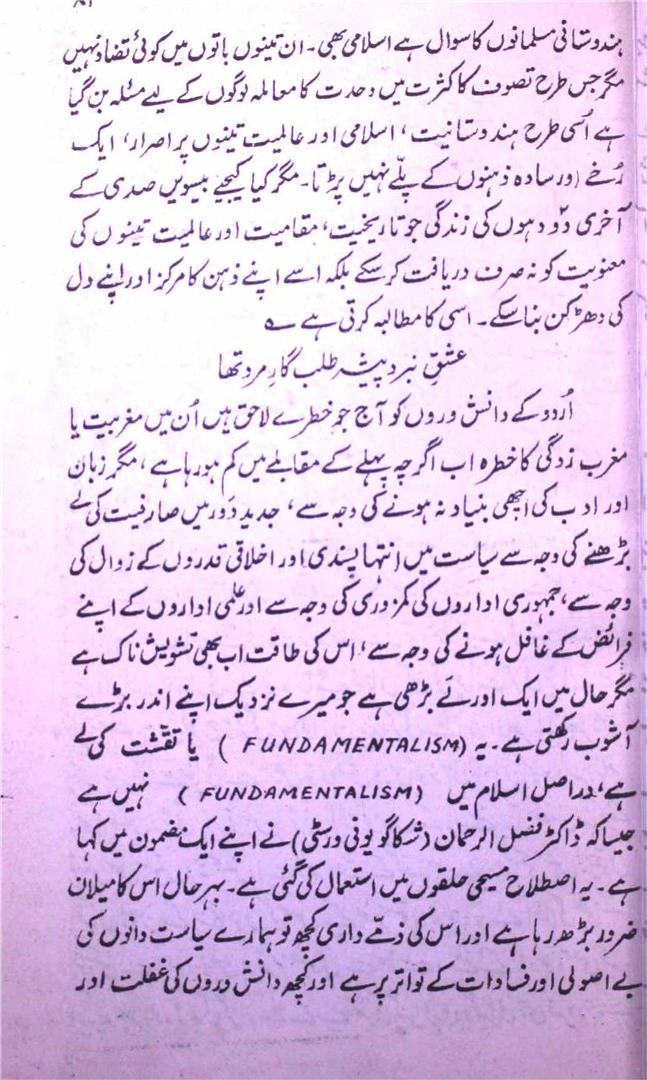 ہندوستانی مسلمانوں کا سوال ہے اسلامی بھی۔ ان تینوں باتوں میں کوئی تضاد نہیں
مگر جس طرح تصوف کا کثرت میں وحدت کا معاملہ لوگوں کے لیے مسئلہ بن گیا
ہے اُسی طرح ہندوستانیت، اسلامی اور عالمیت تینوں پر اصرار، ایک
رُخے اور سادہ ذہنوں کے پلّے نہیں پڑتا۔ مگر کیا کیجیے بیسویں صدی کے
آخری دو دہوں کی زندگی جو تاریخیت، مقامیت اور عالمیت تینوں کی
معنویت کو نہ صرف دریافت کرسکے بلکہ اسے اپنے ذہن کا مرکز اور اپنے دل
کی دھڑکن بنا سکے۔ اسی کا مطالبہ کرتی ہے ؎
عشقِ نبرد پیشہ طلب گارِ مرد تھا
اُردو کے دانش وروں کو آج جو خطرے لاحق ہیں اُن میں مغربیت یا
مغرب زدگی کا خطرہ اب اگرچہ پہلے کے مقابلے میں کم ہو رہا ہے، مگر زبان
اور ادب کی اچھی بنیاد نہ ہونے کی وجہ سے، جدید دَور میں صارفیت کی لَے
بڑھنے کی وجہ سے سیاست میں اِنتہا پسندی اور اخلاقی قدروں کے زوال کی
وجہ سے، جمہوری اداروں کی کمزوری کی وجہ سے اور علمی اداروں کے اپنے
فرائض کے غافل ہونے کی وجہ سے، اس کی طاقت اب بھی تشویش ناک ہے
مگر حال میں ایک اور لَے بڑھی ہے جو میرے نزدیک اپنے اندر بڑے
آشوب رکھتی ہے۔ یہ (FUNDAMENTALISM) یا تقشّف کی لَے
ہے، دراصل اسلام میں (FUNDAMENTALISM) نہیں ہے
جیسا کہ ڈاکٹر فضل الرحمان (شکاگو یونی ورسٹی) نے اپنے ایک مضمون میں کہا
ہے۔ یہ اصطلاح مسیحی حلقوں میں استعمال کی گئی ہے۔ بہرحال اس کا میلان
ضرور بڑھ رہا ہے اور اس کی ذمّے داری کچھ تو ہمارے سیاست دانوں کی
بے اصولی اور فسادات کے تواتر پر ہے اور کچھ دانش وروں کی غفلت اور